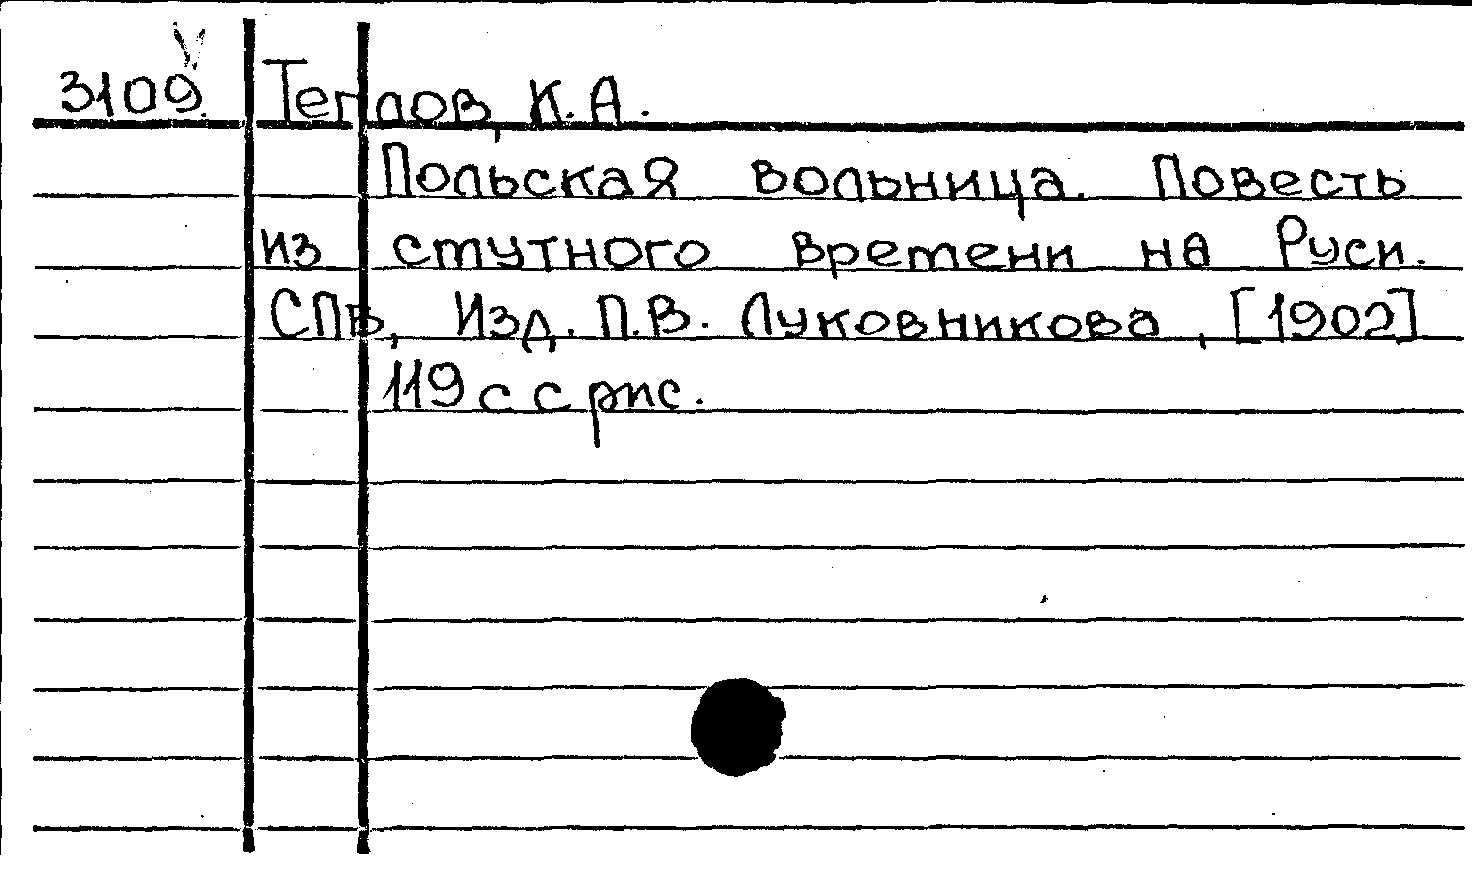 3109. Теплов, К. А.
Польская вольница. Повесть
из смутного времени на Руси.
СПБ, Изд. П.В. Луковникова, [1902]
119 с с рис.